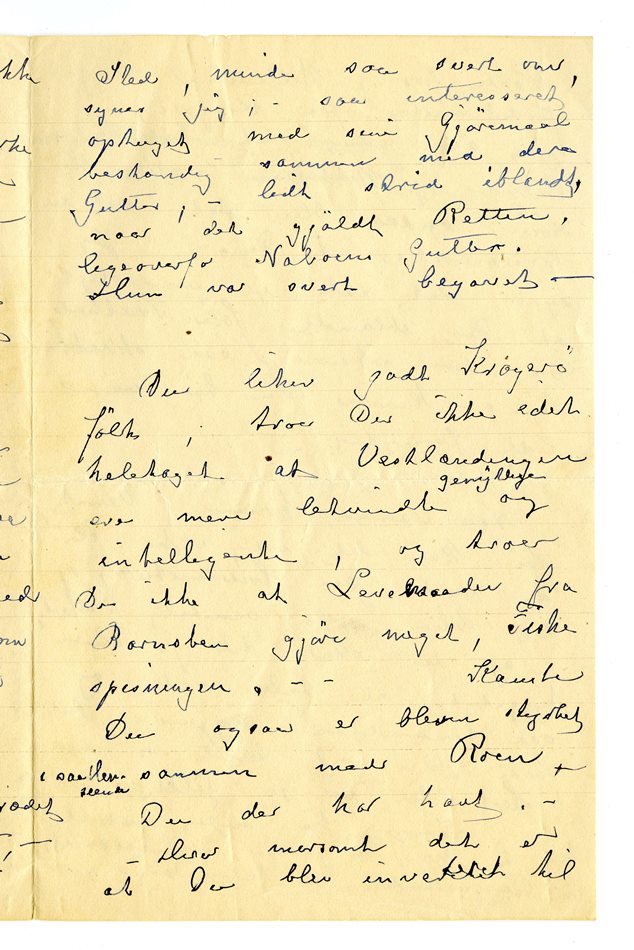 Sted, minde saa svert om,
synes jeg; - saa interesseret,
optaget med sine Gjöremaal
bestandig sammen med dere
Gutter; - lidt strid iblandt,
naar det gjäldt Retten,
ligeoverfor Naboens Gutter.
Hun var svert begavet -
Du liker godt Kragerö
folk; troer Du ikke at det
heletaget at Vestlændingen
gemytlige
ere mere letvindte og
intelligente, og troer
Du ikke at Levemaaden fra
Barnsben gjöre meget, Fiske
spisningen. - -
Du ogsaa er bleven
sammen med Roen
Du der har havt. -
- Hvor morsomt det er
at Du blev inviteret til